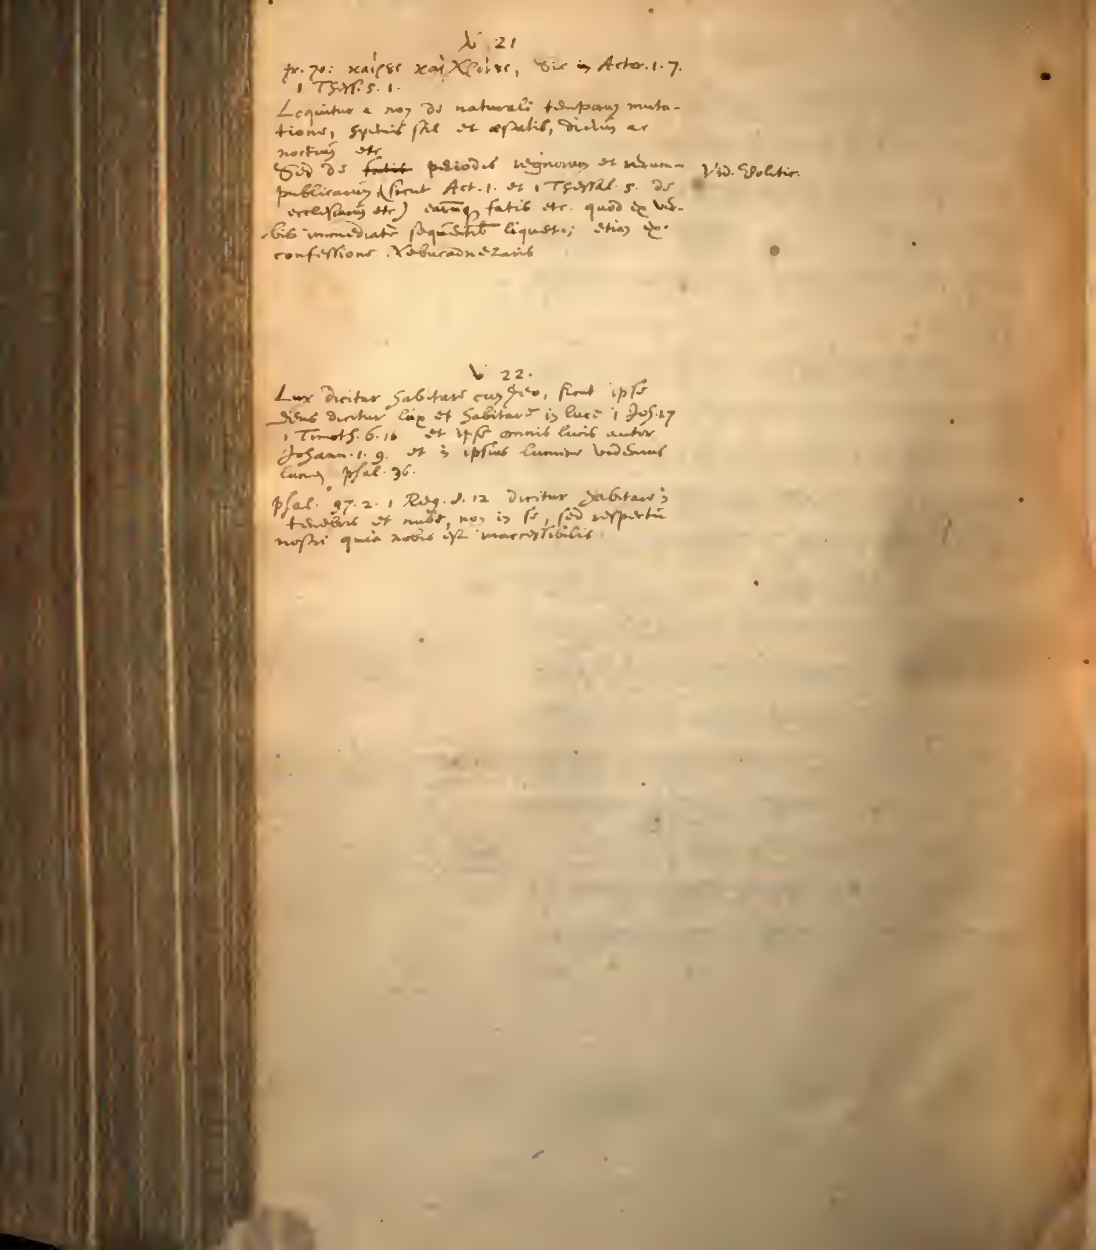 V 21
gr. 70: καίρϑς καὶ Χρόνϑς, Sic in Actor. 1. 7.
1 Thess. 5. 1.
Loquitur non de naturali temporum muta-
tione, et æstatis, dierum ac
noctium etc
Sed de fatis periodis regnorum et rerum-
publicarum (sicut Act. 1. et 1 Thessal. 5. de
ecclesiarum etc) earumq fatis etc. quod ex ver-
bis immediate sequentib liquet; etiam ex
confessione Nebucadnezaris
Vid. Politic.
V 22.
Lux dicitur habitare cum Deo, sicut ipse
Deus dicitur lux et habitare in luce 1 Joh. 1 7
1 Timoth. 6. 16 et ipse omnis lucis autor
Johann. 1. 9. et in ipsius lumine videmus
lumen psal. 36.
psal. 97. 2. 1 Reg. 8. 12 dicitur habitare in
tenebris et nube, non in se, sed respectu
nostri quia nobis est inaccessibilis